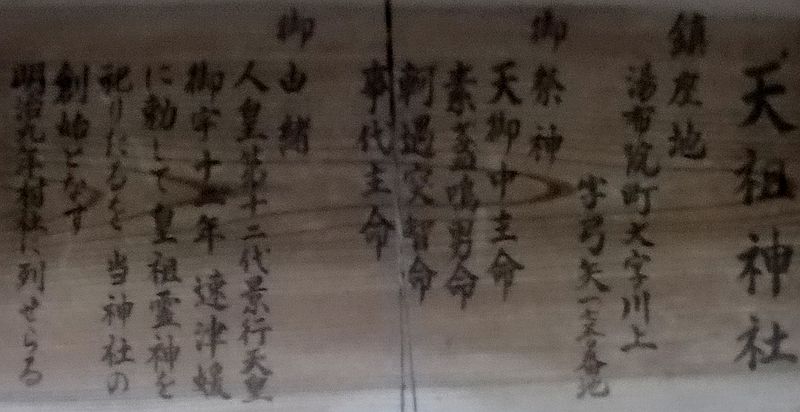 天祖神社
鎮座地
湯布院町大字川上
字弓矢 番地
御祭神
天御中主命
素盞嗚男命
軻遇突智命
事代主命
御由緒
人皇第十二代景行天皇
御宇十二年 速津媛
に勅して皇祖霊神を
祀りたるを 当神社の
創始となす
明治九年村社に列せらる